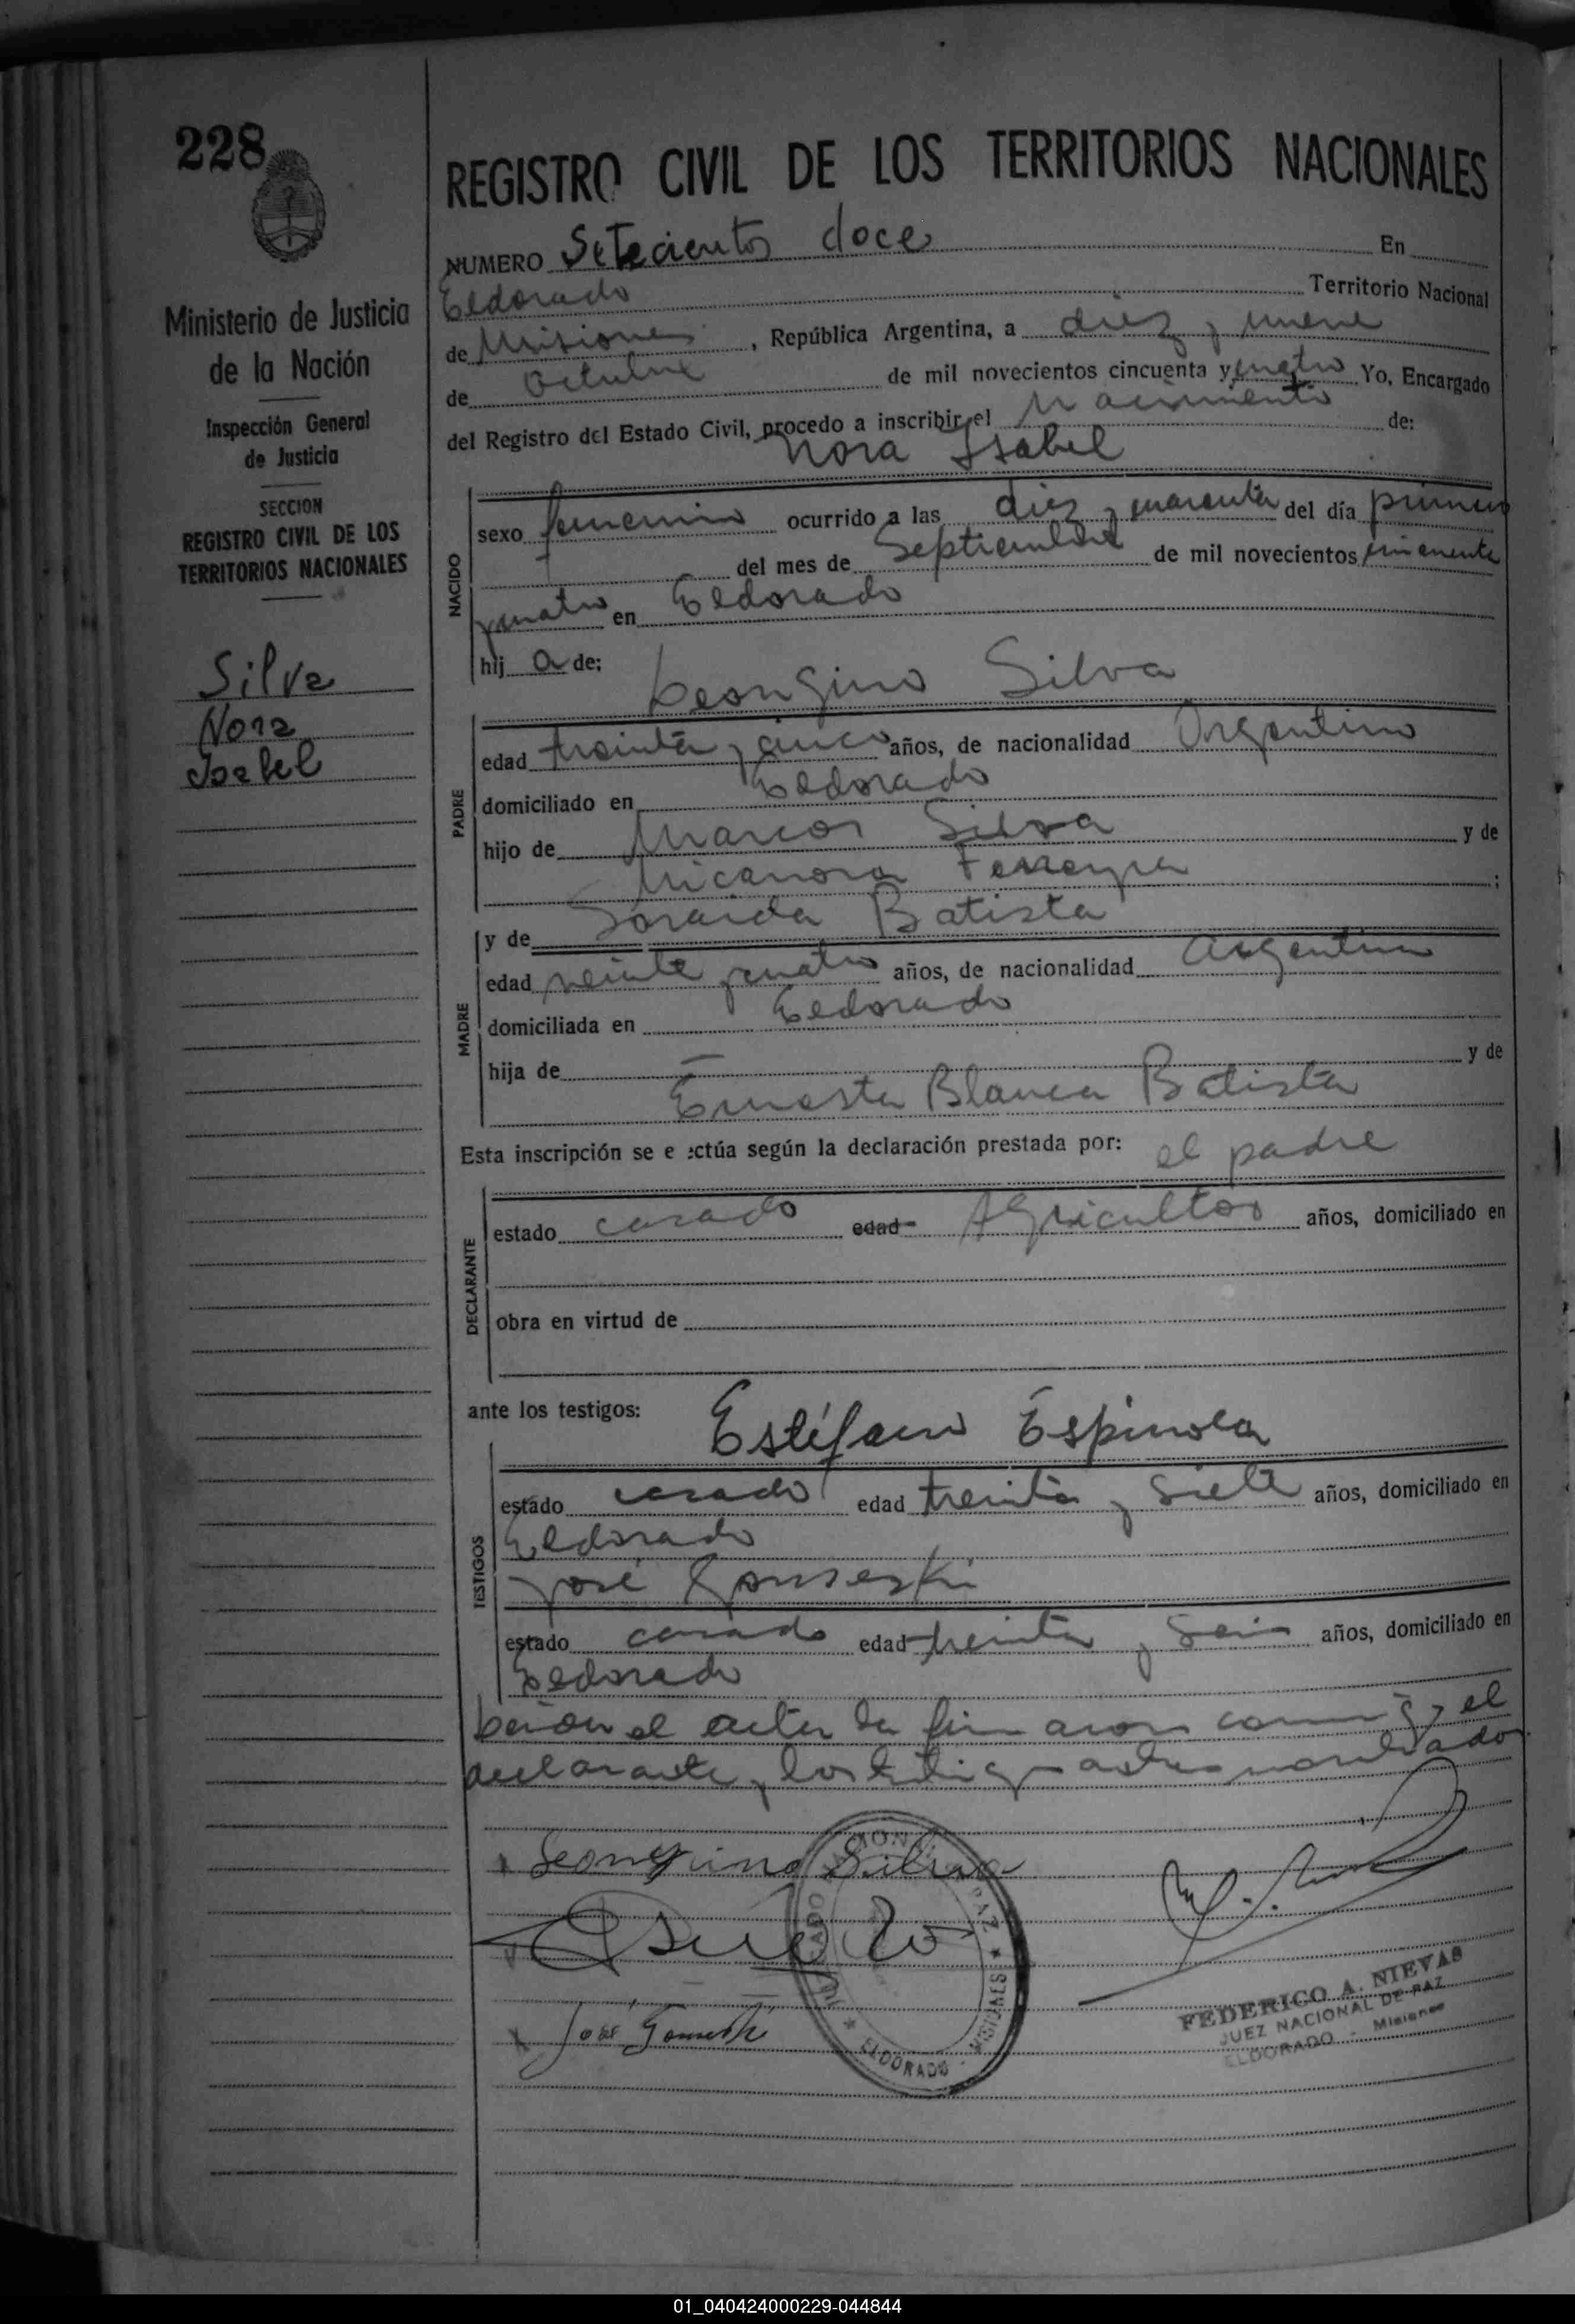 228
Ministerio de Justicia
de la Nación
Inspección General
de Justicia
SECCION
REGISTRO CIVIL DE LOS
TERRITORIOS NACIONALES
Silva
Nora
Isabel
REGISTRO CIVIL DE LOS TERRITORIOS NACIONALES
NUMERO Setecientos doce En
Eldorado Territorio Nacional
de Misiones, República Argentina, a diez y nueve
de Octubre de mil novecientos cincuenta y cuatro Yo, Encargado
del Registro del Estado Civil, procedo a inscribir el Nacimiento de:
Nora Isabel
NACIDO
sexo femenino ocurrido a las diez y cuarenta del día primero
del mes de Septiembre de mil novecientos cincuenta
y cuatro en Eldorado
hij a de:
Leongino Silva
PADRE
edad treinta y cinco años, de nacionalidad Argentino
domiciliado en Eldorado
hijo de Marcos Silva y de
Nicanora Ferreyra ;
y de Soraida Batista
MADRE
edad veinte y cuatro años, de nacionalidad argentina
domiciliada en Eldorado
hija de y de
Ernesta Blanca Batista
Esta inscripción se e ectúa según la declaración prestada por: el padre
DECLARANTE
estado casado edad Agricultor años, domiciliado en
obra en virtud de
ante los testigos: Estéfano Espinola
TESTIGOS
estado casado edad treinta y siete años, domiciliado en
Eldorado
José
estado casado edad treinta y seis años, domiciliado en
Eldorado
el acta la firmaron y el
declarante y los testigos
Leongino Silva
José
ELDORADO - MISIONES
FEDERICO A. NIEVAS
JUEZ NACIONAL DE PAZ
ELDORADO - Misiones
01_040424000229-044844